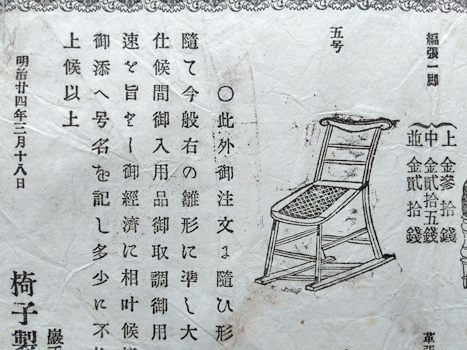 編張一脚
上 金參拾錢
中 金貳拾五錢
並 金貳拾錢
五号
○此外御注文ニ隨ひ形
隨て今般右の雛形に準し大
仕候間御入用品御取調御用
速を旨をし御經濟に相叶候
御添へ号名を記し多少に不
上候以上
明治廿四年三月十八日
椅子製